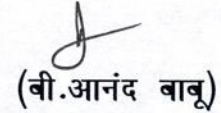 (बी.आनंद बाबू)